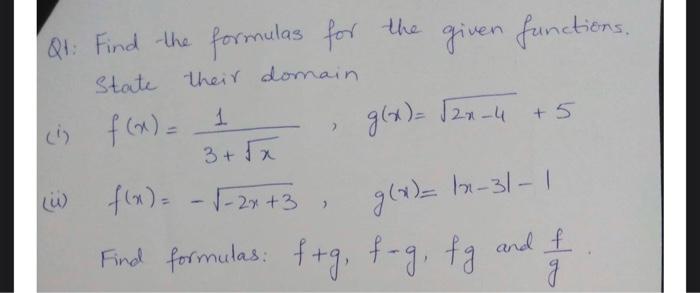 Q1: Find the formulas for the given functions.
State their domain
(i) f(x) = 1/(3+√x) , g(x) = √(2x-4) + 5
(ii) f(x) = -√(-2x+3) , g(x) = |x-3| - 1
Find formulas: f+g, f-g, fg and f/g.